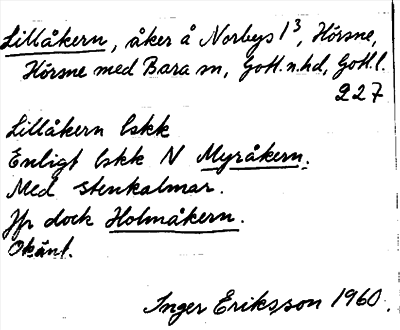 Lillåkern, åker å Norbys 1³, Hörsne,
Hörsne med Bara sn, Gotl. n. hd, Gotl. l.
227
Lillåkern lskk
Enligt lskk N Myråkern.
Med stenkalmar.
Jfr dock Holmåkern.
Okänt.
Inger Eriksson 1960.